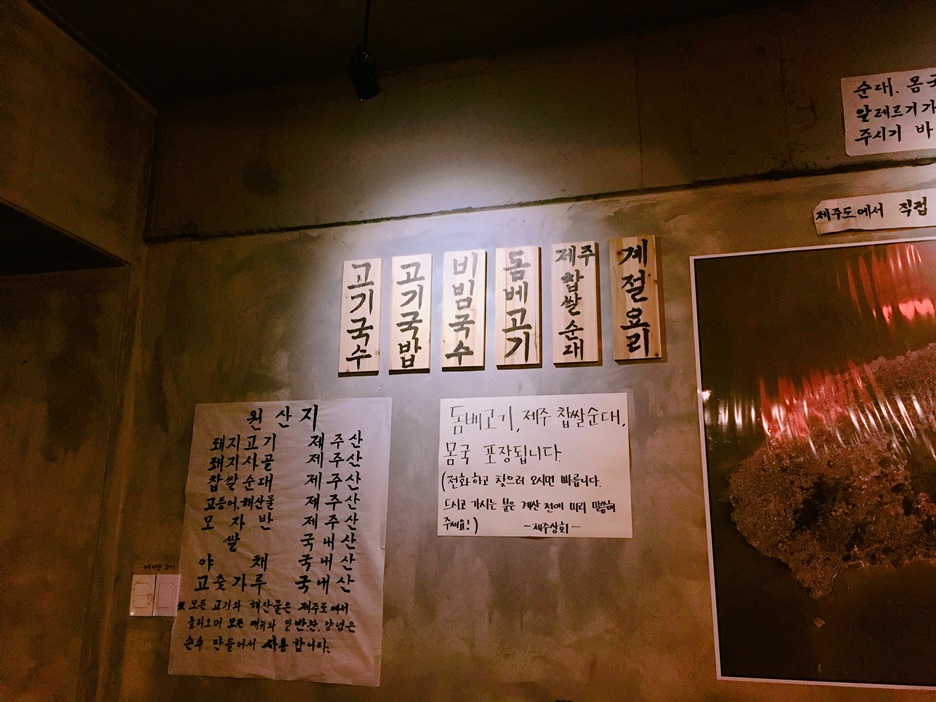 순대, 몸국
알레르기가
주시기 바
제주도에서 직접
고기국수
고기국밥
비빔국수
돔베고기
제주찹쌀순대
계절요리
원산지
돼지고기 제주산
돼지사골 제주산
찹쌀순대 제주산
고등어,해산물 제주산
모자반 제주산
쌀 국내산
야채 국내산
고춧가루 국내산
※모든 고기와 해산물은 제주도에서
올라오며 모든 메뉴와 밑반찬, 양념은
손수 만들어서 사용합니다.
돔베고기, 제주 찹쌀순대,
몸국 포장됩니다.
(전화하고 찾으러 오시면 빠릅니다.
드시고 가시는 분은 계산 전에 미리 말씀해
주세요!) -제주상회-